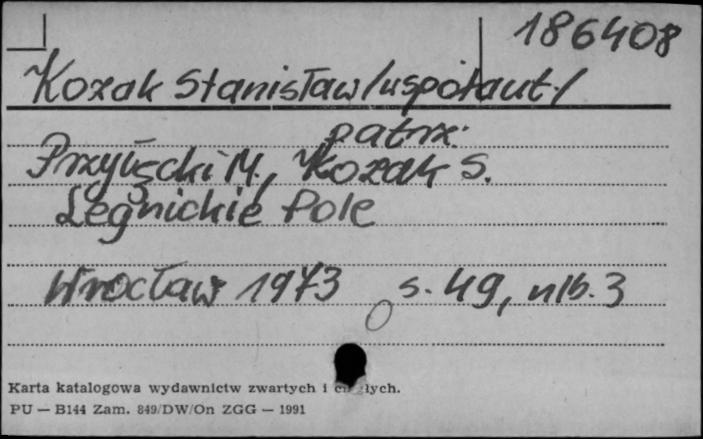 186408
Kozak Stanisław /współaut./
patrz:
Przyłęcki M., Kozak S.
Legnickie Pole
Wrocław 1973 s. 49, nlb. 3
Karta katalogowa wydawnictw zwartych i ciągłych.
PU — B144 Zam. 849/DW/On ZGG — 1991